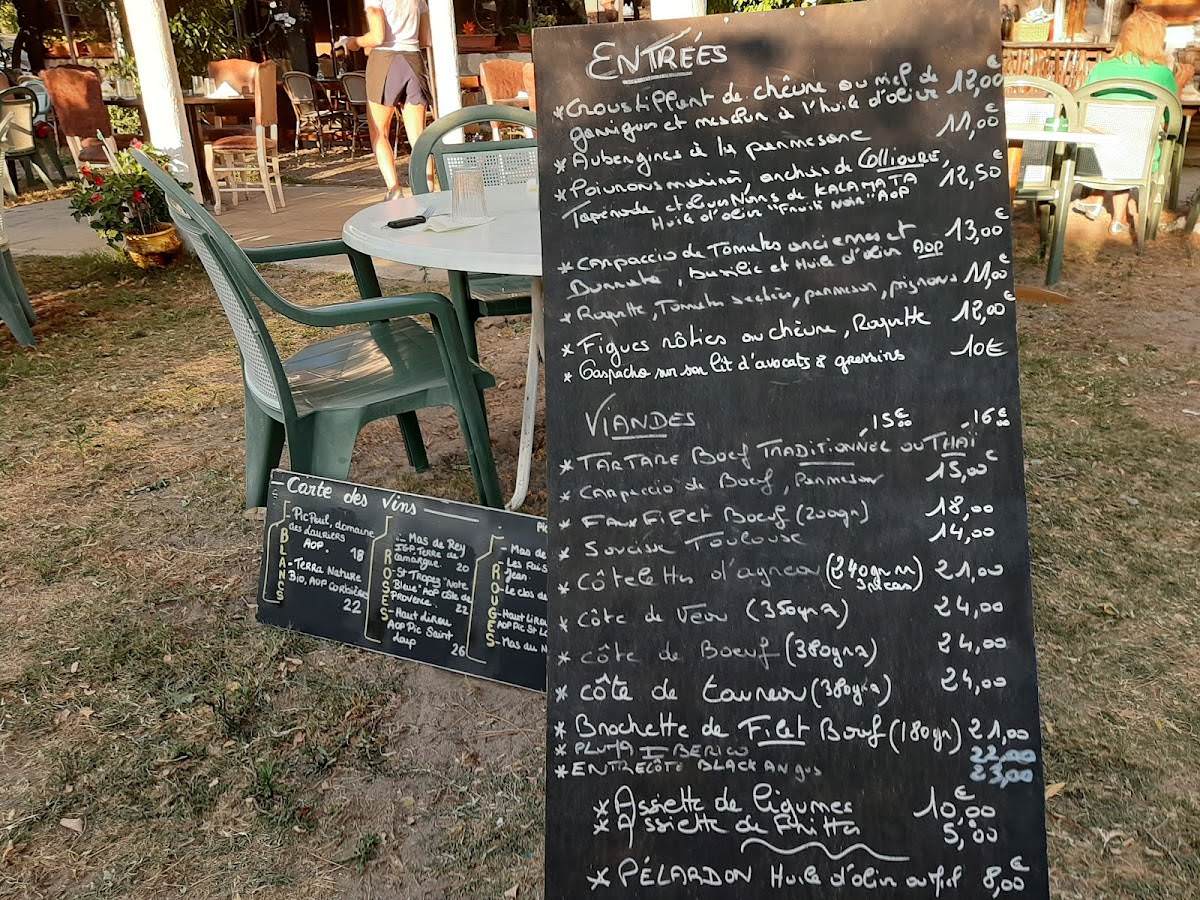 ENTRÉES
* Croustillant de chèvre au miel de 12,00€
garrigue et mesclun à l'huile d'olive
* Aubergines à la parmesane 11,00€
* Poivrons marinés, anchois de COLLIOURE,
Tapenade et olives Noires de KALAMATA 12,50€
Huile d'olive "Fruité Noir" AOP
* CARPACCIO DE Tomates anciennes et 13,00€
Burrata, Basilic et Huile d'olive AOP
* Roquette, Tomates sechées, parmesan, pignons 11,00€
* Figues rôties au chèvre, Roquette 12,00€
* Gaspacho sur son lit d'avocats & gressins 10€
VIANDES 15€ 16€
* TARTARE Boeuf TRADITIONNEL ou THAÏ
* CARPACCIO de Boeuf, Parmesan 15,00€
* FAUX FILET BOEUF (200gr) 18,00
* Saucisse Toulouse 14,00
* CÔTELETTES d'agneau (240grm 21,00
3 pièces)
* CÔTE DE VEAU (350grs) 24,00
* CÔTE DE BOEUF (380grs) 24,00
* CÔTE DE taureau (380grs) 24,00
* Brochette de Filet Boeuf (180gr) 21,00
* PLUMA IBERICO 22,00
* ENTRECÔTE BLACK ANGUS 23,00
* Assiette de légumes 10,00€
* Assiette de Frittes 5,00€
* PÉLARDON Huile d'olive ou miel 8,00€
Carte des vins
BLANCS
- Pic Poul, domaine
des Lauriers
AOP. 18
- Terra Nature
Bio, AOP Corbières
22
ROSÉS
- Mas de Rey
IGP. Terre de
Camargue 20
- St Tropez "Note
Bleue" AOP Côte de
Provence. 22
- Haut Lirou
AOP Pic Saint
Loup 26
ROUGES
- Mas de
- Les
Jean
- Le clos de
- Haut Lirou
AOP Pic St L
- Mas du N